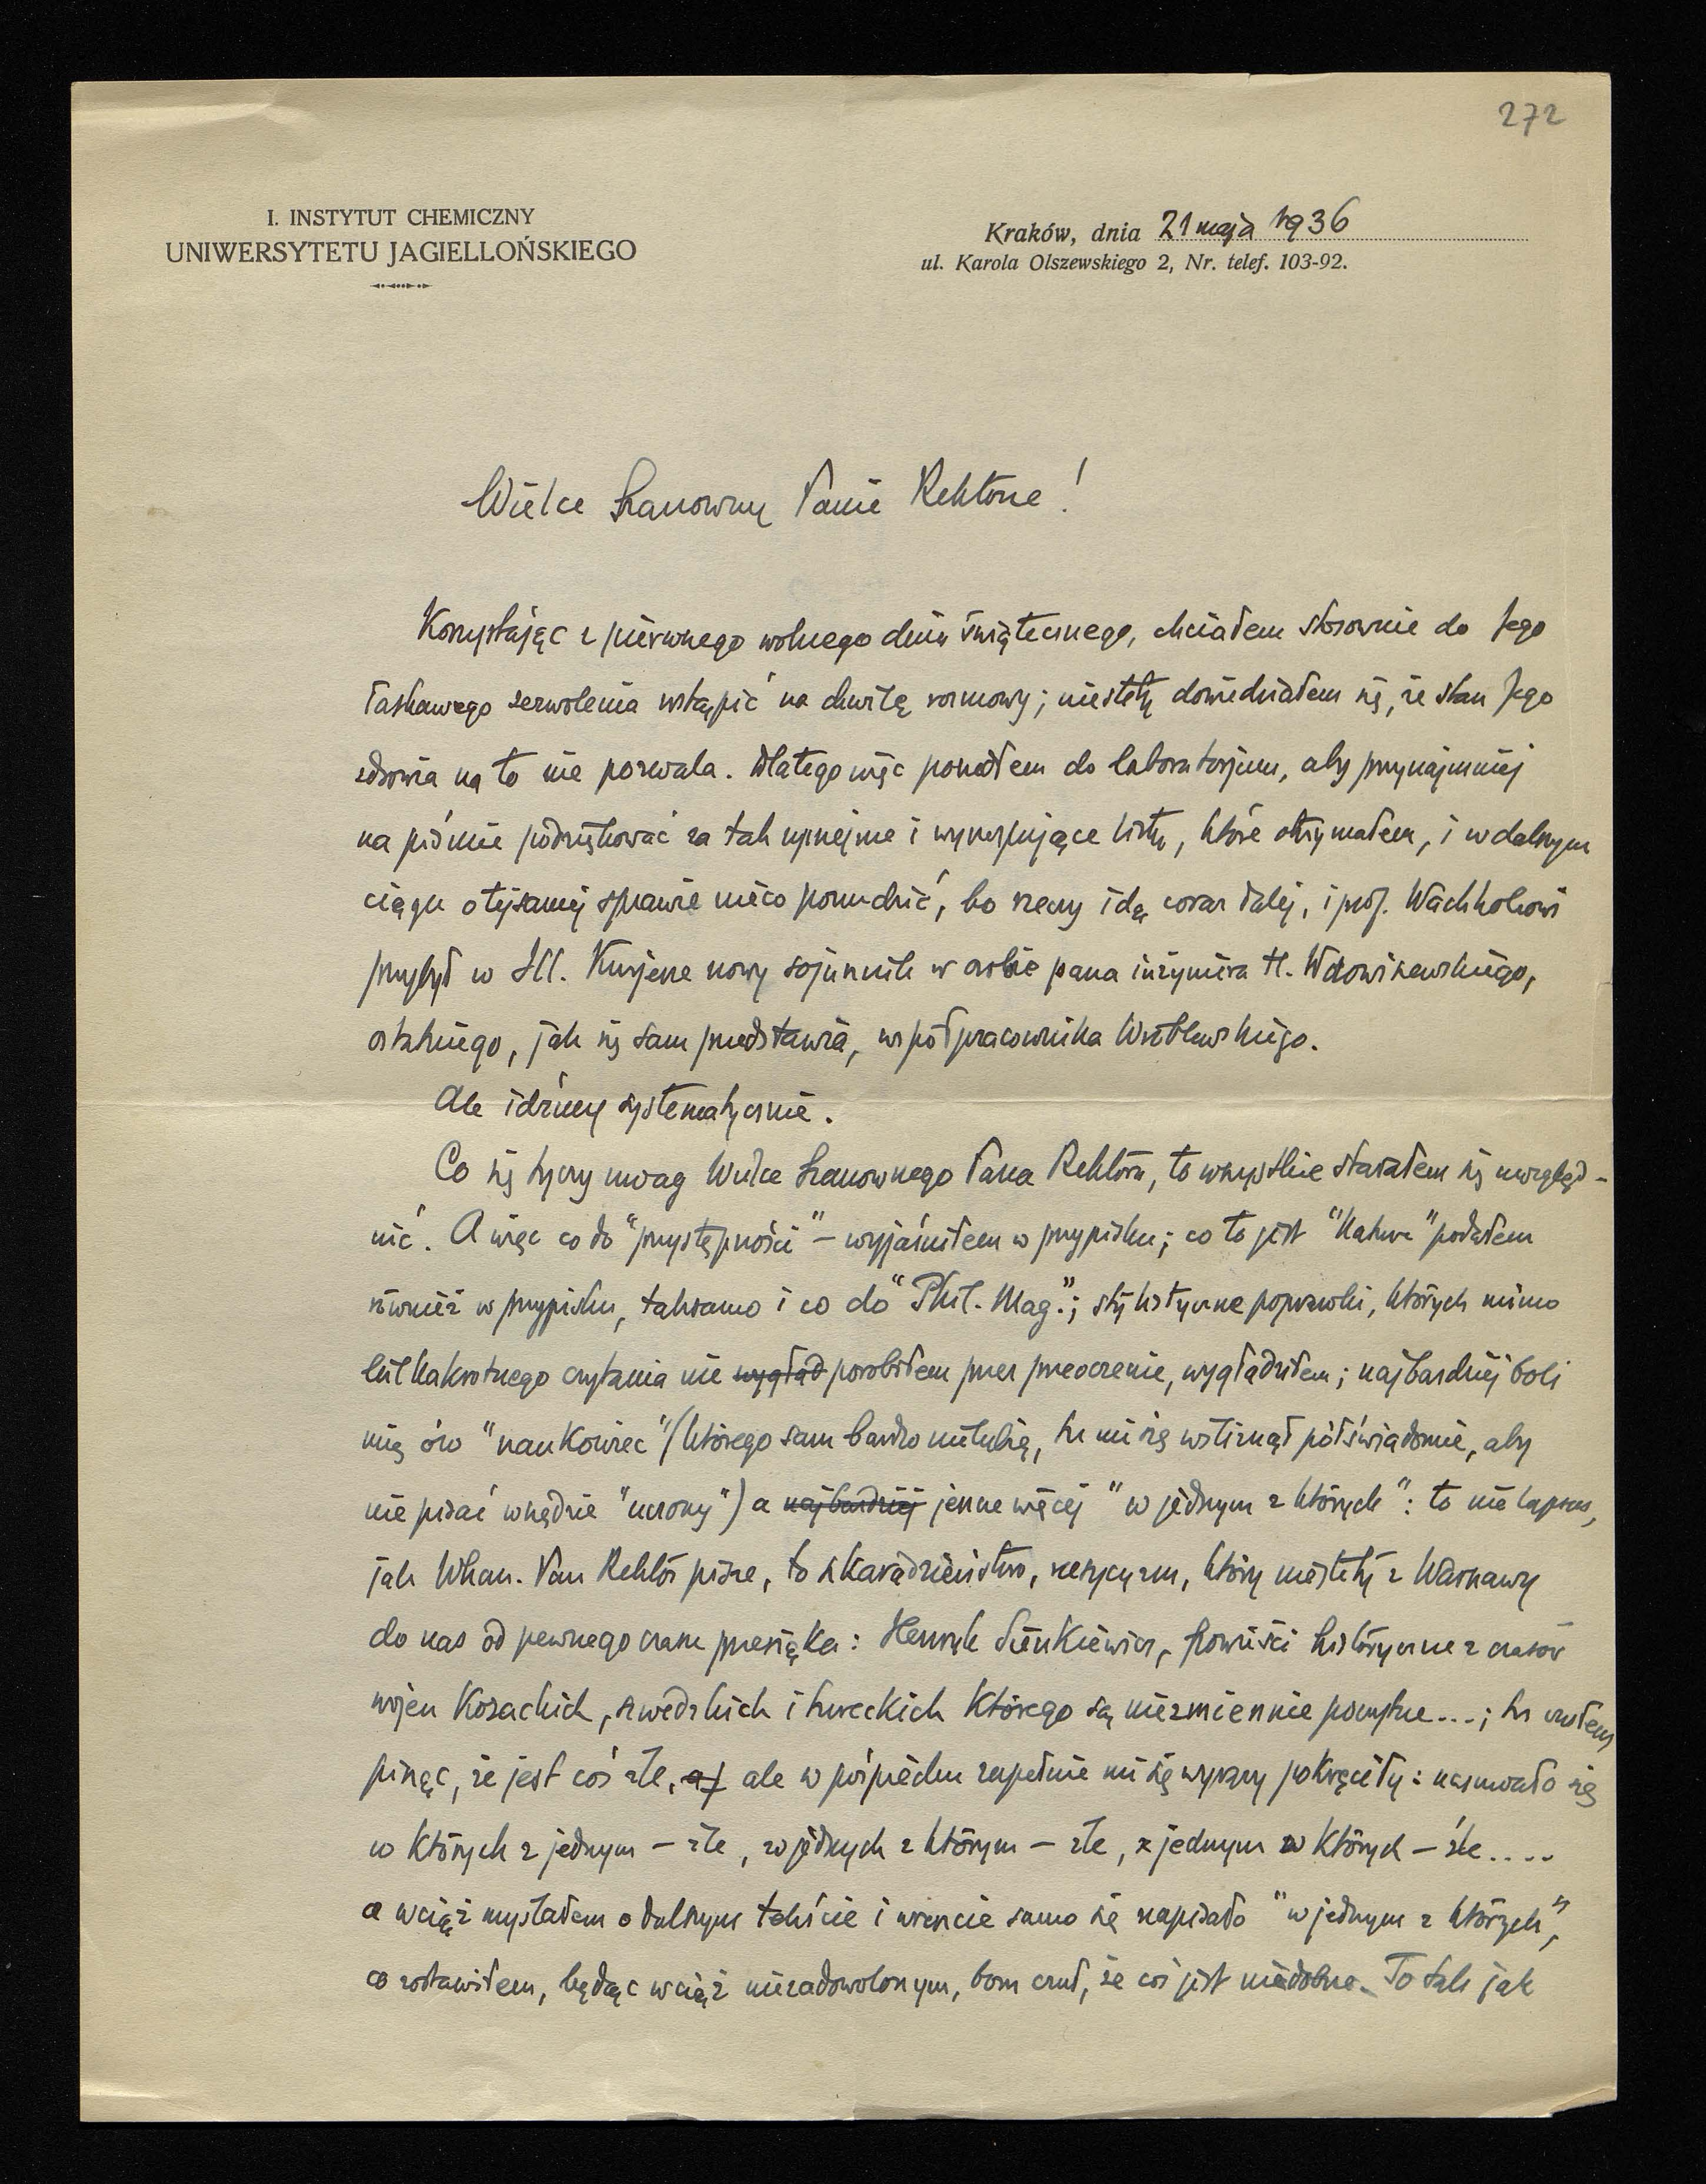 272
I. INSTYTUT CHEMICZNY
UNIWERSYTETU JAGIELLOŃSKIEGO
Kraków, dnia 21 maja 1936
ul. Karola Olszewskiego 2, Nr. telef. 103-92.
Wielce Szanowny Panie Rektorze!
Korzystając z pierwszego wolnego dnia świątecznego, chciałem stosownie do Jego
łaskawego zezwolenia wstąpić na chwilę rozmowy; niestety dowiedziałem się, że stan Jego
zdrowia na to nie pozwala. Dlatego więc poszedłem do laboratorjum, aby przynajmniej
na piśmie podziękować za tak uprzejme i wyczerpujące listy, które otrzymałem, i w dalszym
ciągu o tejsamej sprawie nieco ponudzić, bo rzeczy idą coraz dalej, i prof. Wachholzowi
przybył w Ill. Kurjerze nowy sojusznik w osobie pana inżyniera H. Wdowiszewskiego,
ostatniego, jak się sam przedstawia, współpracownika Wróblewskiego.
Ale idźmy systematycznie.
Co się tyczy uwag Wielce Szanownego Pana Rektora, to wszystkie starałem się uwzględ-
nić. A więc co do "przystępności" – wyjaśniłem w przypisku; co to jest "Nature" podałem
również w przypisku, taksamo i co do "Phil. Mag."; stylistyczne poprawki, których mimo
kilkakrotnego czytania nie wygład porobiłem przez przeoczenie, wygładziłem; najbardziej boli
mię ów "naukowiec" (którego sam bardzo nielubię, tu mi się wśliznął półświadomie, aby
nie pisać wszędzie "uczony") a najbardziej jeszcze więcej "w jednym z których": to nie lapsus,
jak WSzan. Pan Rektor pisze, to szkaradzieństwo, rusycyzm, który niestety z Warszawy
do nas od pewnego czasu przesiąka: Henryk Sienkiewicz, powieści historyczne z czasów
wojen kozackich, szwedzkich i tureckich którego są niezmiennie poczytne...; tu czułem
pisząc, że jest coś złe, ale w pośpiechu zupełnie mi się wyrazy pokręciły: nasuwało się
w których z jednym – źle, w jednych z którym – źle, z jednym w których – źle....
a wciąż myślałem o dalszym tekście i wreszcie samo się napisało "w jednym z których",
co zostawiłem, będąc wciąż niezadowolonym, bom czuł, że coś jest niedobrze. To tak jak